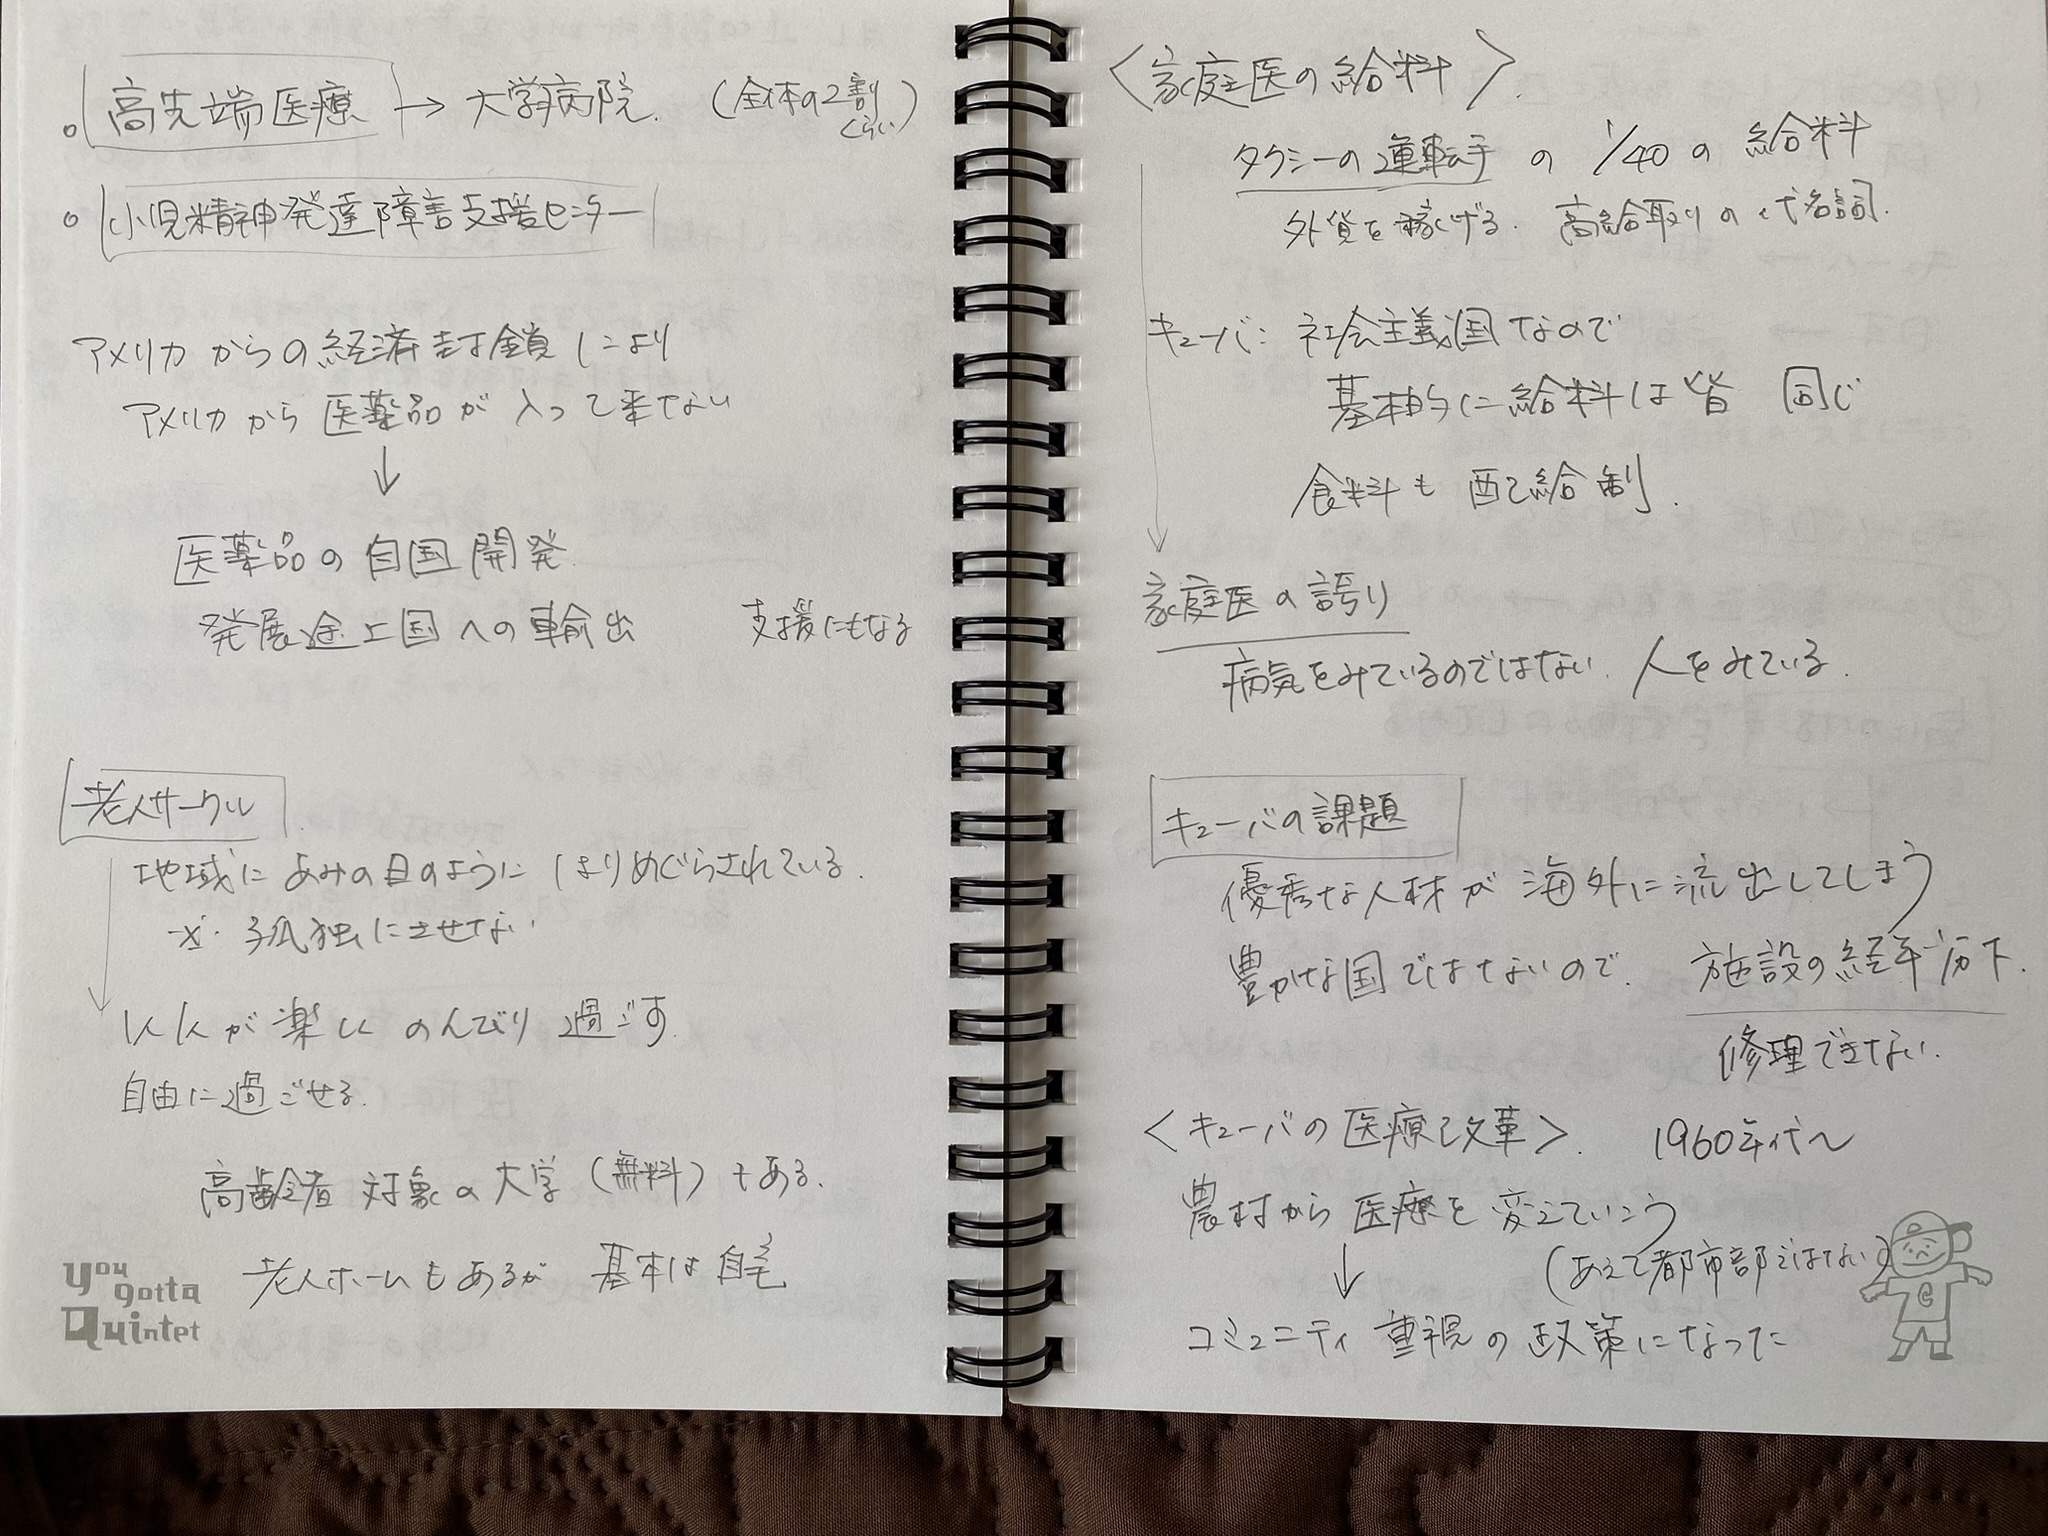 。高先端医療 → 大学病院. (全体の2割くらい)
。小児精神発達障害支援センター
アメリカからの経済封鎖により
アメリカから医薬品が入って来ない
↓
医薬品の自国開発
発展途上国への輸出 支援にもなる
老人サークル
地域にあみの目のようにはりめぐらされている.
孤独にさせない
人々が楽しくのんびり過ごす.
自由に過ごせる.
高齢者対象の大学(無料)もある.
老人ホームもあるが 基本は自宅
you
gotta
Quintet
<家庭医の給料>.
タクシーの運転手の1/40の給料
外貨を稼げる. 高給取りの代名詞.
キューバ: 社会主義国なので
基本的に給料は皆 同じ
食料も配給制.
家庭医の誇り
病気をみているのではない. 人をみている.
キューバの課題
優秀な人材が海外に流出してしまう
豊かな国ではないので. 施設の経年劣下.
修理できない.
<キューバの医療改革>. 1960年代〜
農村から医療を変えていこう
↓ (あえて都市部ではない)
コミュニティ重視の政策になった
C